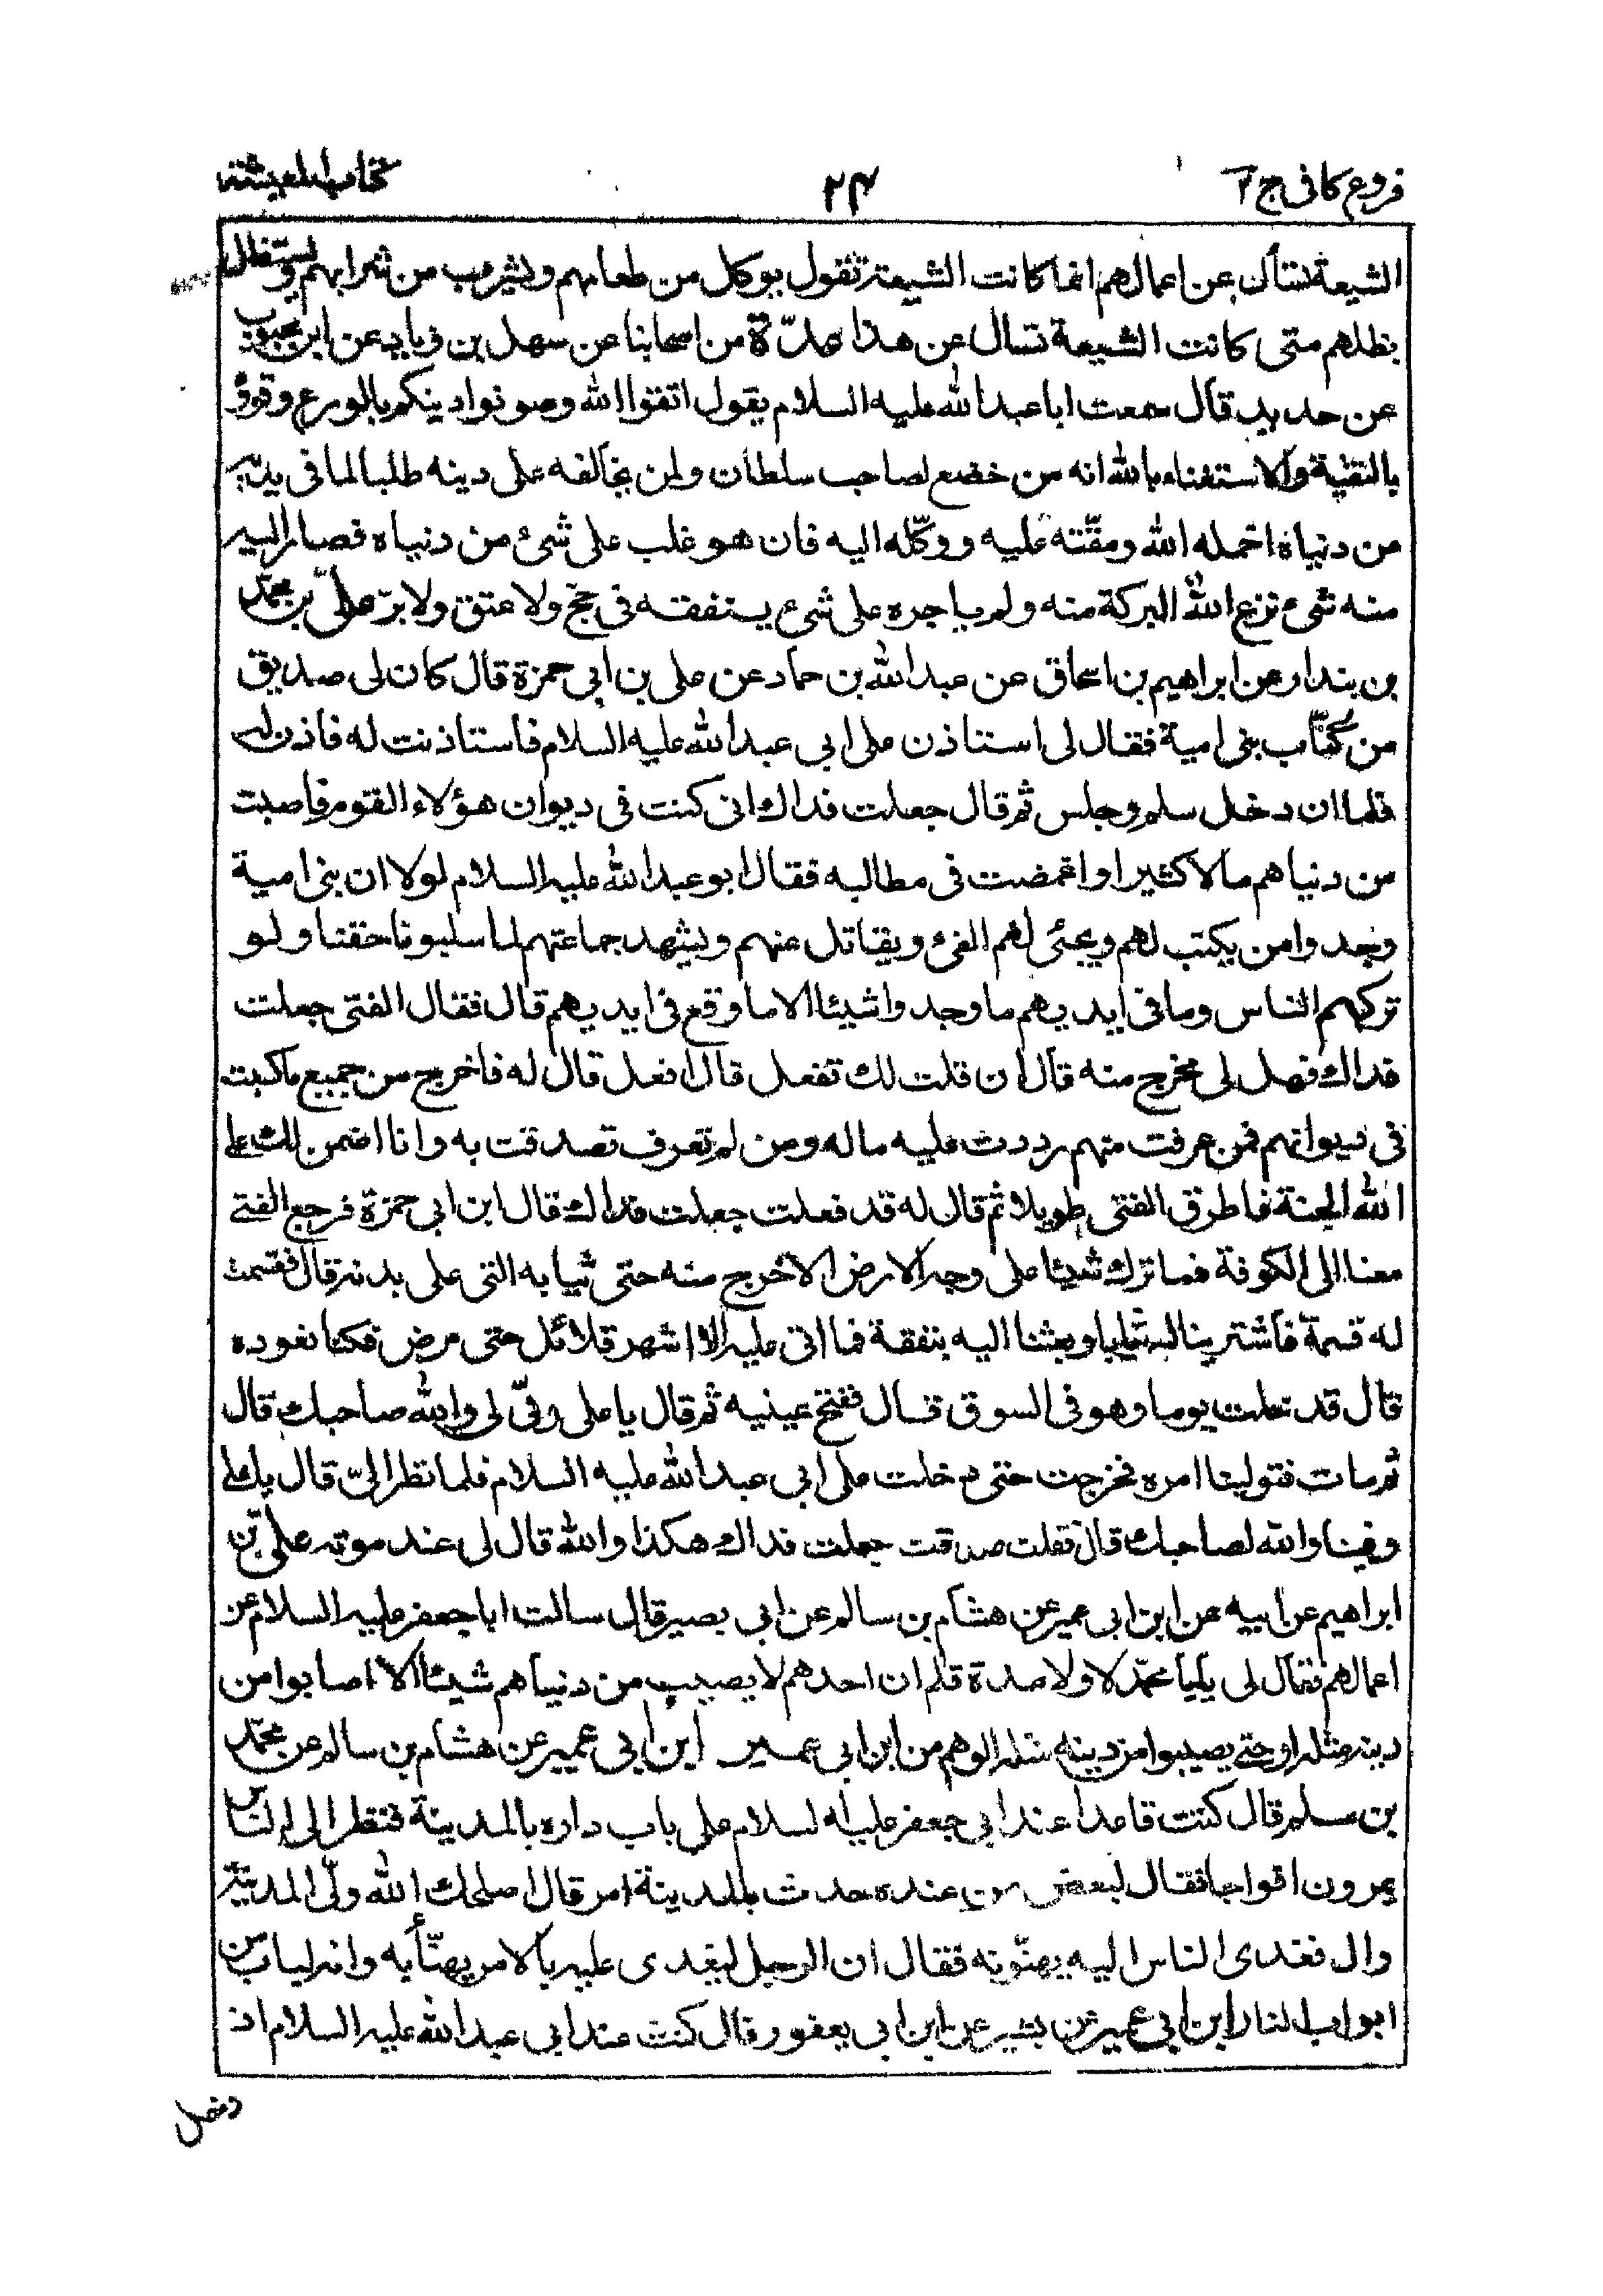 فروع كافى ج ٢
٢٤
كتاب المعيشة
الشيعة تسأل عن اعمالهم انما كانت الشيعة تقول يوكل من طعامهم ويشرب من شرابهم ويستظل
بظلهم متى كانت الشيعة تسال عن هذا عدّة من اصحابنا عن سهل بن زياد عن ابن محبوب
عن حديد قال سمعت ابا عبد الله عليه السلام يقول اتقوا الله وصونوا دينكم بالورع وقوّوه
بالتقية والاستغناء بالله انه من خضع لصاحب سلطان ولمن يخالفه على دينه طلبا لما فى يديه
من دنياه اخمله الله ومقّته عليه ووكّله اليه فان هو غلب على شئ من دنياه فصار اليه
منه شئ نزع الله البركة منه ولم ياجره على شئ ينفقه فى حجّ ولا عتق ولا برّ علىّ بن محمّد
بن بندار عن ابراهيم بن اسحاق عن عبد الله بن حماد عن على بن ابى حمزة قال كان لى صديق
من كُتّاب بنى امية فقال لى استاذن على ابى عبد الله عليه السلام فاستاذنت له فاذن له
فلما ان دخل سلم وجلس ثم قال جعلت فداك انى كنت فى ديوان هؤلاء القوم فاصبت
من دنياهم مالا كثيرا واغمضت فى مطالبه فقال ابو عبد الله عليه السلام لولا ان بنى امية
وجدوا من يكتب لهم ويجئى لهم الفئ ويقاتل عنهم ويشهد جماعتهم لما سلبونا حقنا ولو
تركهم الناس وما فى ايديهم ما وجدوا شيئا الا ما وقع فى ايديهم قال فقال الفتى جعلت
فداك فهل لى مخرج منه قال ان قلت لك تفعل قال افعل قال له فاخرج من جميع ما كسبت
فى ديوانهم فمن عرفت منهم رددت عليه ماله ومن لم تعرف تصدقت به وانا اضمن لك على
الله الجنة فاطرق الفتى طويلا ثم قال له قد فعلت جعلت فداك قال ابن ابى حمزة فرجع الفتى
معنا الى الكوفة فما ترك شيئا على وجه الارض الا خرج منه حتى ثيابه التى على بدنه قال فقسمت
له قسمة فاشترينا له ثيابا وبعثنا اليه بنفقة فما اتى عليه الا اشهر قلائل حتى مرض فكنا نعوده
قال فدخلت يوما وهو فى السوق قال ففتح عينيه ثم قال يا على وفّى لى والله صاحبك قال
ثم مات فتولينا امره فخرجت حتى دخلت على ابى عبد الله عليه السلام فلما نظر الىّ قال يا على
وفينا والله لصاحبك قال فقلت صدقت جعلت فداك هكذا والله قال لى عند موته علىّ بن
ابراهيم عن ابيه عن ابن ابى عمير عن هشام بن سالم عن ابى بصير قال سالت ابا جعفر عليه السلام عن
اعمالهم فقال لى يا با محمّد لا ولا مدة قلم ان احدهم لا يصيب من دنياهم شيئا الا اصابوا من
دينه مثله او حتى يصيبوا من دينه مثله الوهم من ابن ابى عمير ابن ابى عمير عن هشام بن سالم عن محمّد
بن مسلم قال كنت قاعدا عند ابى جعفر عليه السلام على باب داره بالمدينة فنظر الى الناس
يمرون افواجا فقال لبعض من عنده حدث بالمدينة امر قال اصلحك الله ولّى المدينة
وال فغدى الناس اليه يهنّونه فقال ان الرجل ليغدى عليه بالامر يهنّأ به وانه لباب من
ابواب النار ابن ابى عمير عن بشير عن ابن ابى يعفور قال كنت عند ابى عبد الله عليه السلام اذ
دخل